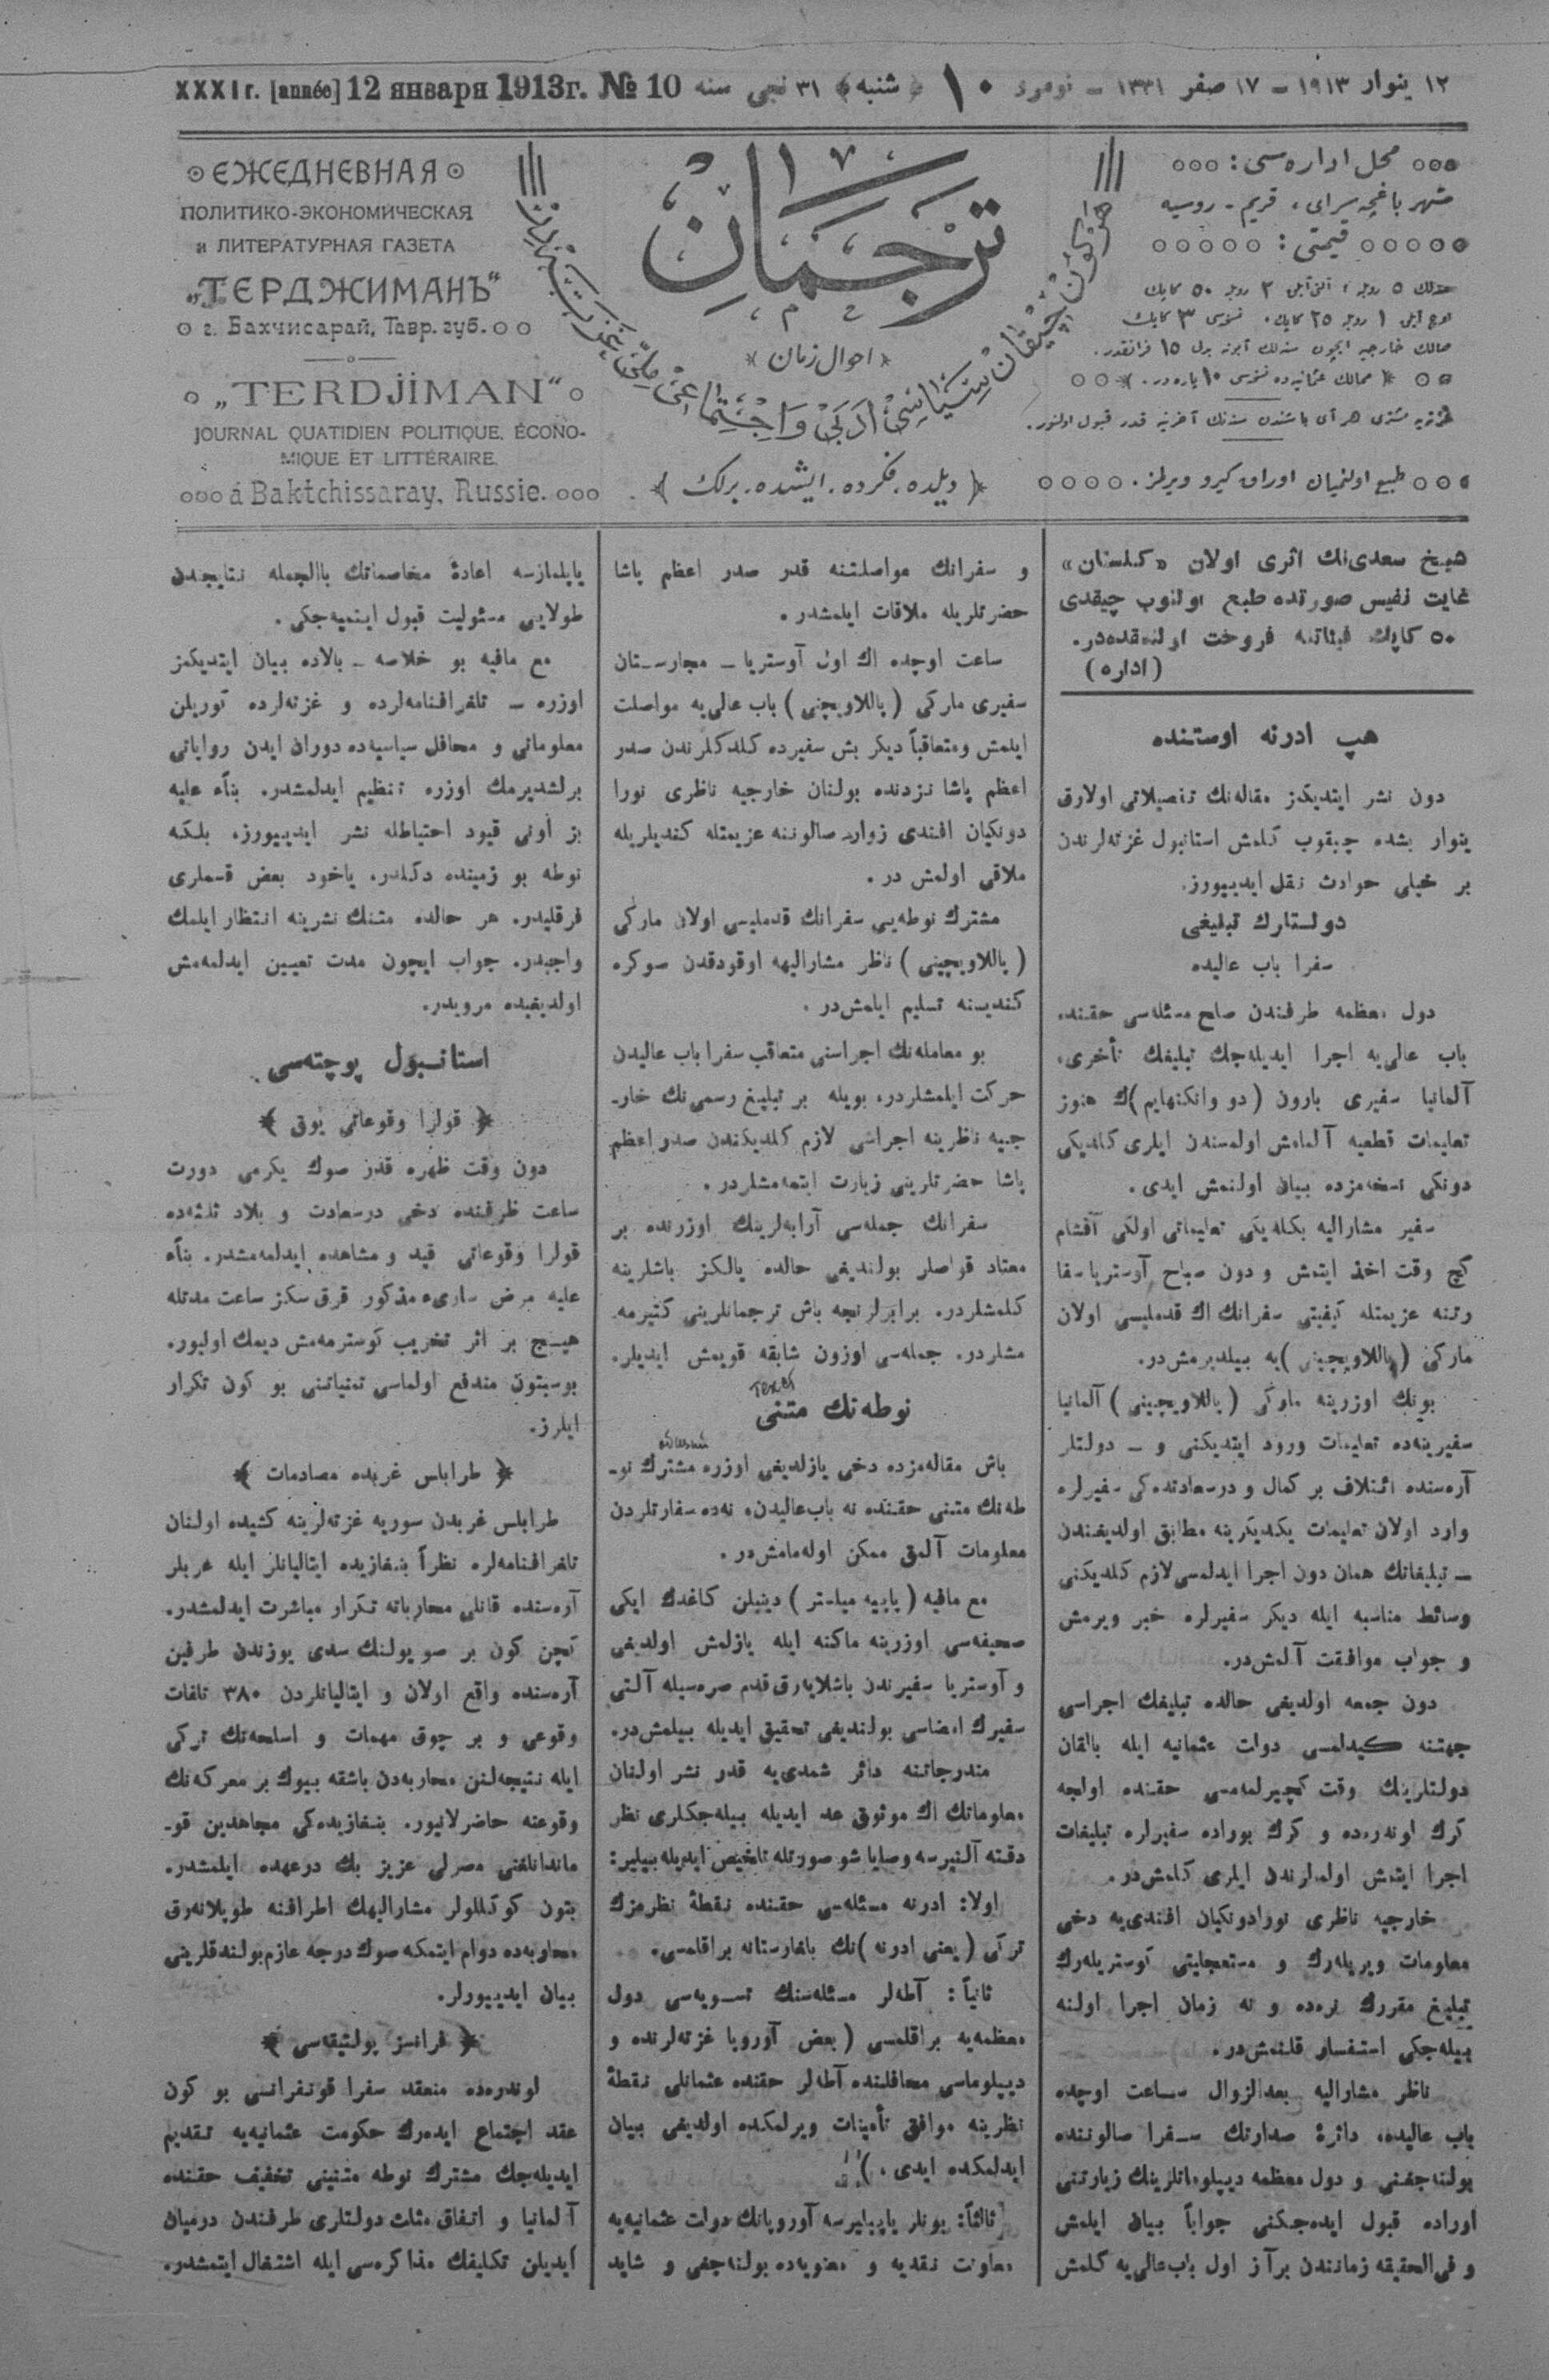 ١٢ ينوار ١٩١٣ – ١٧ صفر ١٣٣١ – نومرو ١٠ ﴿شنبه﴾ ٣١ نجى سنه XXXI г. [année] 12 января 1913г. № 10
محل اداره‌سى :
شهر باغچه سراى ، قريم - روسيه
قيمتى :
سنه‌لك ٥ روبله ؛ آلتى آيلق ٢ روبله ٥٠ كاپك
اوچ آيلق ١ روبله ٢٥ كاپك . نسخه‌سى ٣ كاپك
ممالك خارجيه ايچون سنه‌لك آبونه بدلى ١٥ فرانقدر .
ممالك عثمانيه‌ده نسخه‌سى ١٠ پاره‌در .
غزته‌يه مشترى هر آى باشندن سنه‌نك آخرينه قدر قبول اولنور .
طبع اولنميان اوراق كيرو ويرلمز .
ترجمان
١٧
احوال زمان
هر كون چيقان سياسى، ادبى و اجتماعى ملى غزته‌در
﴿ ديلده . فكرده . ايشده . برلك ﴾
ЕЖЕДНЕВНАЯ
ПОЛИТИКО-ЭКОНОМИЧЕСКАЯ
и ЛИТЕРАТУРНАЯ ГАЗЕТА
„ТЕРДЖИМАНЪ“
г. Бахчисарай, Тавр. губ.
„TERDJİMAN“
JOURNAL QUATIDIEN POLITIQUE, ÉCONO-
MIQUE ET LITTÉRAIRE.
á Baktchissaray, Russie.
شيخ سعدى‌نك اثرى اولان «كلستان»
غايت نفيس صورتده طبع اولنوب چيقدى
٥٠ كاپك فيئاتنه فروخت اولنه‌قده‌در.
(اداره)
هپ ادرنه اوستنده
دون نشر ايتديكمز مقاله‌نك تفصيلاتى اولارق
ينوار بشده چيقوب كلمش استانبول غزته‌لرندن
بر خيلى حوادث نقل ايدييورز.
دولتلرك تبليغى
سفرا باب عاليده
دول معظمه طرفندن صلح مسئله‌سى حقنده
باب عالى‌يه اجرا ايديله‌جك تبليغك تأخرى،
آلمانيا سفيرى بارون (دو وانكنهايم)ك هنوز
تعليمات قطعيه آلمامش اولمسندن ايلرى كلديكى
دونكى نسخه‌مزده بيان اولنمش ايدى.
سفير مشاراليه بكله‌يكى تعليماتى اولكى آقشام
كيچ وقت اخذ ايتمش و دون صباح آوستريا سفا
رتنه عزيمتله كيفيتى سفرانك اك قدمليسى اولان
ماركى (پاللاويچينى)يه بيلديرمش‌در.
بونك اوزرينه ماركى (پاللاويچينى) آلمانيا
سفيرينه‌ده تعليمات ورود ايتديكنى و – دولتلر
آره‌سنده ائتلاف بر كمال و درسعادتده‌كى سفيرلره
وارد اولان تعليمات يكديكرينه مطابق اولديغندن
– تبليغاتك همان دون اجرا ايدلمسى لازم كلديكنى
وسائط مناسبه ايله ديكر سفيرلره خبر ويرمش
و جواب موافقت آلمش‌در.
دون جمعه اولديغى حالده تبليغك اجراسى
جهتنه كيدلمسى دولت عثمانيه ايله بالقان
دولتلرينك وقت كچيرلمه‌مسى حقنده اولجه
كرك لوندره‌ده و كرك بوراده سفيرلره تبليغات
اجرا ايتمش اولمه‌لرندن ايلرى كلمش‌در.
خارجيه ناظرى نورادونكيان افندى‌يه دخى
معلومات ويريله‌رك و مستعجليتى كوستريله‌رك
تبليغ مقررك نره‌ده و نه زمان اجرا اولنه
بيله‌جكى استفسار قلنمش‌در.
ناظر مشاراليه بعدالزوال ساعت اوچده
باب عاليده، دائرهٔ صدارتك سفرا صالوننده
بولنه‌جغنى و دول معظمه ديپلوماتلرينك زيارتنى
اوراده قبول ايده‌جكنى جواباً بيان ايلمش
و فى‌الحقيقه زمانندن برآز اول باب عالى‌يه كلمش
و سفرانك مواصلتنه قدر صدر اعظم پاشا
حضرتلريله ملاقات ايلمشدر.
ساعت اوچده اك اول آوستريا – مجارستان
سفيرى ماركى (پاللاويچنى) باب عالى‌يه مواصلت
ايلمش ومتعاقباً ديكر بش سفيرده كلدكلرندن صدر
اعظم پاشا نزدنده بولنان خارجيه ناظرى نورا
دونكيان افندى زوار صالوننه عزيمتله كنديلريله
ملاقى اولمش در.
مشترك نوطه‌يى سفرانك قدمليسى اولان ماركى
(پاللاويچينى) ناظر مشاراليهه اوقودقدن صوكره
كنديسنه تسليم ايلمش‌در.
بو معامله‌نك اجراسنى متعاقب سفرا باب عاليدن
حركت ايلمشلردر، بويله بر تبليغ رسمى‌نك خار-
جيه ناظرينه اجراسى لازم كلديكندن صدر اعظم
پاشا حضرتلرينى زيارت ايتمه‌مشلردر.
سفرانك جمله‌سى آرابه‌لرينك اوزرنده بر
معتاد قواصلر بولنديغى حالده يالكز باشلرينه
كلمشلردر. برابرلرنجه باش ترجمانلرينى كتيرمه‌
مشلردر. جمله‌سى اوزون شابقه قويمش ايديلر.
نوطه‌نك متنى
باش مقاله‌مزده دخى يازلديغى اوزره مشترك نو-
طه‌نك متنى حقنده نه باب عاليدن، نه‌ده سفارتلردن
معلومات آلمق ممكن اوله‌مامش‌در.
مع مافيه (پاپيه ميلـتر) دينيلن كاغدك ايكى
صحيفه‌سى اوزرينه ماكنه ايله يازلمش اولديغى
و آوستريا سفيرندن باشلايه‌رق قدم صره‌سيله آلتى
سفيرك امضاسى بولنديغى تحقيق ايديله بيلمش‌در.
مندرجاتنه دائر شمدى‌يه قدر نشر اولنان
معلوماتك اك موثوق عد ايديله بيله‌جكلرى نظر
دقته آلنيرسه وصايا شو صورتله تلخيص ايديله بيلير:
اولا: ادرنه مسئله‌سى حقنده نقطهٔ نظرمزك
تركى (يعنى ادرنه)نك بلغارستانه براقلمسى.
ثانياً: آطه‌لر مسئله‌سنك تسويه‌سى دول
معظمه‌يه براقلمسى (بعض آوروپا غزته‌لرنده و
ديپلوماسى محافلنده آطه‌لر حقنده عثمانلى نقطهٔ
نظرينه موافق تأمينات ويرلمكده اولديغى بيان
ايدلمكده ايدى.)
ثالثاً: بونلر ياپيليرسه آوروپانك دولت عثمانيه‌يه
معاونت نقديه و معنويه‌ده بولنه‌جغى و شايد
ياپلمازسه اعادهٔ مخاصماتك بالجمله نتايجدن
طولايى مسئوليت قبول ايتميه‌جكى.
مع مافيه بو خلاصه – بالاده بيان ايتديكمز
اوزره – تلغرافنامه‌لرده و غزته‌لرده كوريلن
معلوماتى و محافل سياسيه‌ده دوران ايدن رواياتى
برلشديرمك اوزره تنظيم ايدلمشدر. بناءً عليه
بز اونى قيود احتياطله نشر ايدييورز، بلكه
نوطه بو زمينده دكلدر، ياخود بعض قسملرى
فرقليدر. هر حالده متنك نشرينه انتظار ايلمك
واجبدر. جواب ايچون مدت تعيين ايدلمه‌مش
اولديغيده مرويدر.
استانبول پوچته‌سى
﴿ قولرا وقوعاتى يوق ﴾
دون وقت ظهره قدر صوك يكرمى دورت
ساعت ظرفنده دخى درسعادت و بلاد ثلثه‌ده
قولرا وقوعاتى قيد و مشاهده ايدلمه‌مشدر. بناءً
عليه مرض سارىء مذكور قرق سكز ساعت مدتله
هيچ بر اثر تخريب كوسترمه‌مش ديمك اوليور.
بوسبتون مندفع اولماسى تمنياتنى بو كون تكرار
ايلرز.
﴿ طرابلس غربده مصادمات ﴾
طرابلس غربدن سوريه غزته‌لرينه كشيده اولنان
تلغرافنامه‌لره نظراً بنغازيده ايتاليانلر ايله عربلر
آره‌سنده قانلى محارباته تكرار مباشرت ايدلمشدر.
كچن كون بر صو يولنك سدى يوزندن طرفين
آره‌سنده واقع اولان و ايتاليانلردن ٣٨٠ تلفات
وقوعى و بر چوق مهمات و اسلحه‌نك تركى
ايله نتيجه‌لنن محاربه‌دن باشقه بيوك بر معركه‌نك
وقوعنه حاضرلانيور. بنغازيده‌كى مجاهدين قو-
ماندانلغنى مصرلى عزيز بك درعهده ايلمشدر.
بتون كوكللولر مشاراليهك اطرافنه طوپلانه‌رق
محاربه‌ده دوام ايتمكه صوك درجه عازم بولندقلرينى
بيان ايدييورلر.
﴿ فرانسز پولتيقه‌سى ﴾
لوندره‌ده منعقد سفرا قونفرانسى بو كون
عقد اجتماع ايده‌رك حكومت عثمانيه‌يه تقديم
ايديله‌جك مشترك نوطه متنينى تخفيف حقنده
آلمانيا و اتفاق مثلث دولتلرى طرفندن درميان
ايديلن تكليفك مذاكره‌سى ايله اشتغال ايتمشدر.